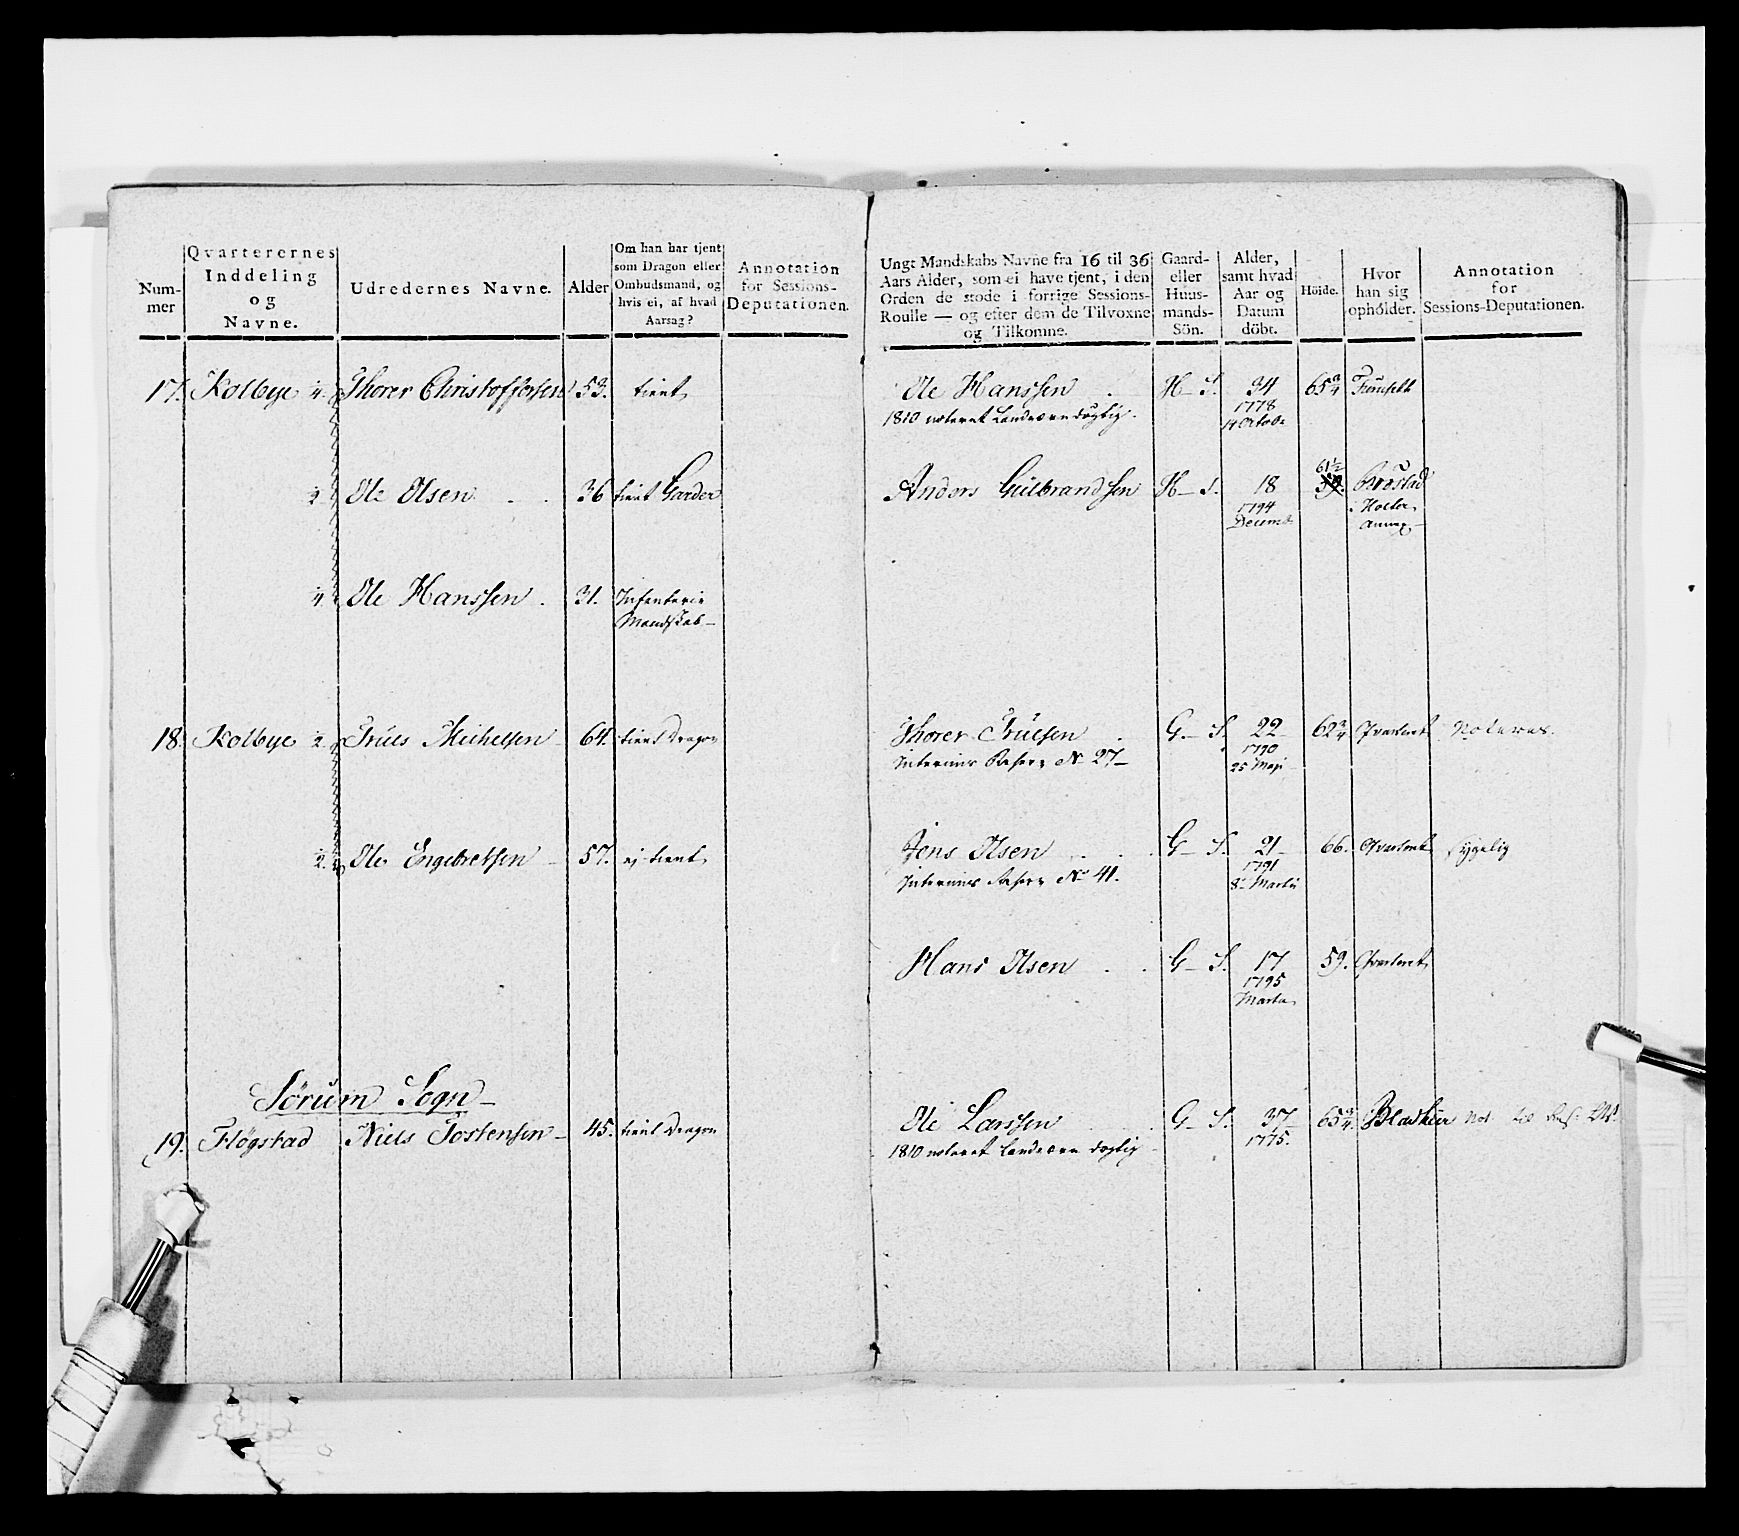 Num-
mer
Qvarterernes
Inddeling
og
Navne.
Udredernes Navne.
Alder
Om han har tjent
som Dragon eller
Ombudsmand, og
hvis ei, af hvad
Aarsag?
Annotation
for Sessions-
Deputationen.
17. Kolbye 1/4. Thorer Christoffersen 53. tient
1/2 Ole Olsen 36 tient Garder
1/4. Ole Hanssen. 31. Infanterie
Mandskab
18. Kolbye 1/2. Truls Michelsen 64. tient Dragon
1/2. Ole Engebretsen 57. ej tient
Sørum Sogn
19. Fløgstad Niels Jostensen 45. tient Dragon
Ungt Mandskabs Navne fra 16 til 36
Aars Alder, som ei have tjent, i den
Orden de stode i forrige Sessions-
Roulle — og efter dem de Tilvoxne
og Tilkomne.
Gaard-
eller
Huus-
mands-
Sön.
Alder,
samt hvad
Aar og
Datum
döbt.
Höide.
Hvor
han sig
opholder.
Annotation
for
Sessions-Deputationen.
Ole Hanssen H- S. 34 65 3/4
1810 noteret Landværn dygtig. 1778
14 Octobr
Anders Gulbrandsen H- S. 18 61 1/2
1794 Holter
Decembr Annex
Thorer Trulsen G.- S. 22 62 3/4 Qvarteret Noteres.
Interims Reserv No 27 1790
25 Maji
Jens Olsen G- S. 21 66. Qvarteret Sygelig
Interims Reserv No 41. 1791
8 Martii
Hans Olsen G- S. 17 59. Qvarteret
1795
Martii
Ole Larssen G- S. 37 65 3/4 Blakkier Not. til Res:
1810 noteret Landværn dygtig 1775.